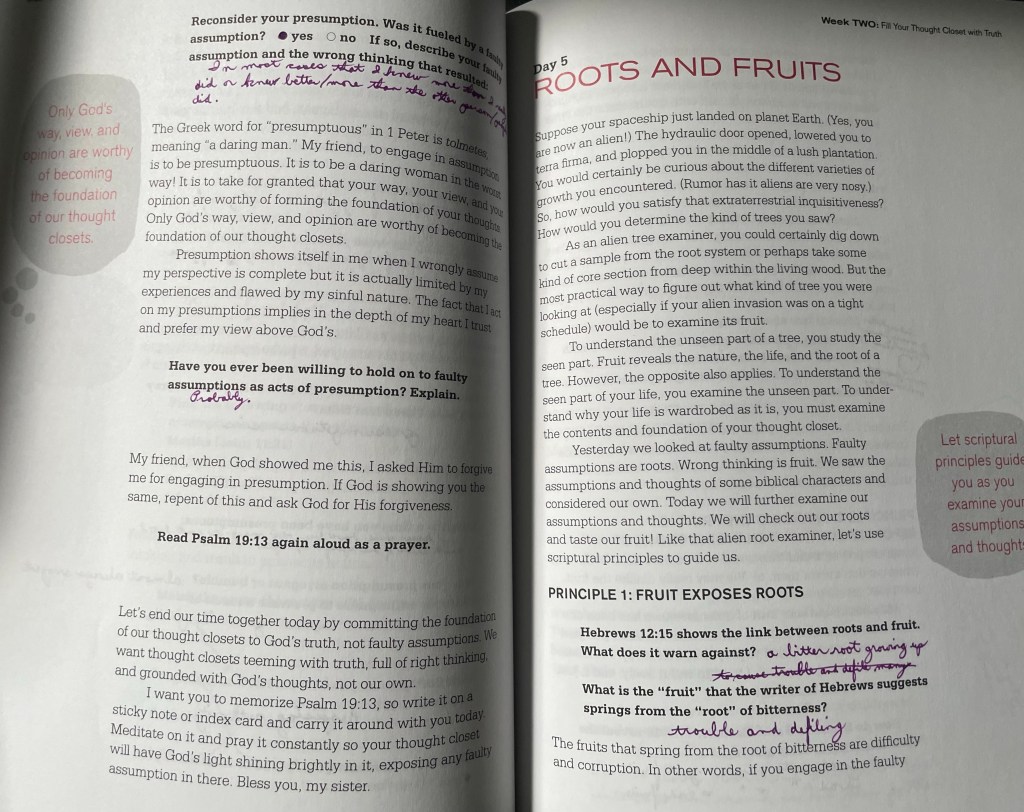 Reconsider your presumption. Was it fueled by a faulty
assumption? ● yes ○ no If so, describe your faulty
assumption and the wrong thinking that resulted:
In most cases that I knew more than I
did or knew better/more than the other person
did.
Only God's
way, view, and
opinion are worthy
of becoming
the foundation
of our thought
closets.
The Greek word for "presumptuous" in 1 Peter is tolmetes,
meaning "a daring man." My friend, to engage in assumption
is to be presumptuous. It is to be a daring woman in the worst
way! It is to take for granted that your way, your view, and your
opinion are worthy of forming the foundation of your thoughts.
Only God's way, view, and opinion are worthy of becoming the
foundation of our thought closets.
Presumption shows itself in me when I wrongly assume
my perspective is complete but it is actually limited by my
experiences and flawed by my sinful nature. The fact that I act
on my presumptions implies in the depth of my heart I trust
and prefer my view above God's.
Have you ever been willing to hold on to faulty
assumptions as acts of presumption? Explain.
Probably.
My friend, when God showed me this, I asked Him to forgive
me for engaging in presumption. If God is showing you the
same, repent of this and ask God for His forgiveness.
Read Psalm 19:13 again aloud as a prayer.
Let's end our time together today by committing the foundation
of our thought closets to God's truth, not faulty assumptions. We
want thought closets teeming with truth, full of right thinking,
and grounded with God's thoughts, not our own.
I want you to memorize Psalm 19:13, so write it on a
sticky note or index card and carry it around with you today.
Meditate on it and pray it constantly so your thought closet
will have God's light shining brightly in it, exposing any faulty
assumption in there. Bless you, my sister.
Week TWO: Fill Your Thought Closet with Truth
Day 5
ROOTS AND FRUITS
Suppose your spaceship just landed on planet Earth. (Yes, you
are now an alien!) The hydraulic door opened, lowered you to
terra firma, and plopped you in the middle of a lush plantation.
You would certainly be curious about the different varieties of
growth you encountered. (Rumor has it aliens are very nosy.)
So, how would you satisfy that extraterrestrial inquisitiveness?
How would you determine the kind of trees you saw?
As an alien tree examiner, you could certainly dig down
to cut a sample from the root system or perhaps take some
kind of core section from deep within the living wood. But the
most practical way to figure out what kind of tree you were
looking at (especially if your alien invasion was on a tight
schedule) would be to examine its fruit.
To understand the unseen part of a tree, you study the
seen part. Fruit reveals the nature, the life, and the root of a
tree. However, the opposite also applies. To understand the
seen part of your life, you examine the unseen part. To under-
stand why your life is wardrobed as it is, you must examine
the contents and foundation of your thought closet.
Yesterday we looked at faulty assumptions. Faulty
assumptions are roots. Wrong thinking is fruit. We saw the
assumptions and thoughts of some biblical characters and
considered our own. Today we will further examine our
assumptions and thoughts. We will check out our roots
and taste our fruit! Like that alien root examiner, let's use
scriptural principles to guide us.
Let scriptural
principles guide
you as you
examine your
assumptions
and thoughts
PRINCIPLE 1: FRUIT EXPOSES ROOTS
Hebrews 12:15 shows the link between roots and fruit.
What does it warn against? a bitter root growing up
to cause trouble and defile many
What is the "fruit" that the writer of Hebrews suggests
springs from the "root" of bitterness?
trouble and defiling
The fruits that spring from the root of bitterness are difficulty
and corruption. In other words, if you engage in the faulty